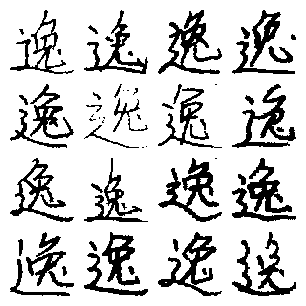 逸逸逸逸
逸逸逸逸
逸逸逸逸
逸逸逸逸